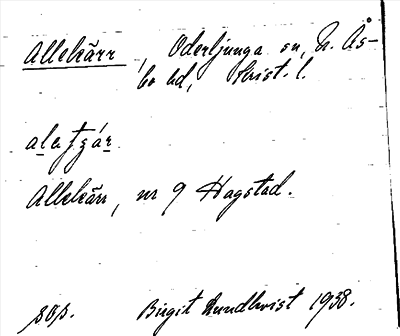 Allekärr, Oderljunga sn, N. Ås-
bo hd, Krist. l.
Allekärr, nr 9 Hagstad.
sep. Birgit Lundkvist 1938.